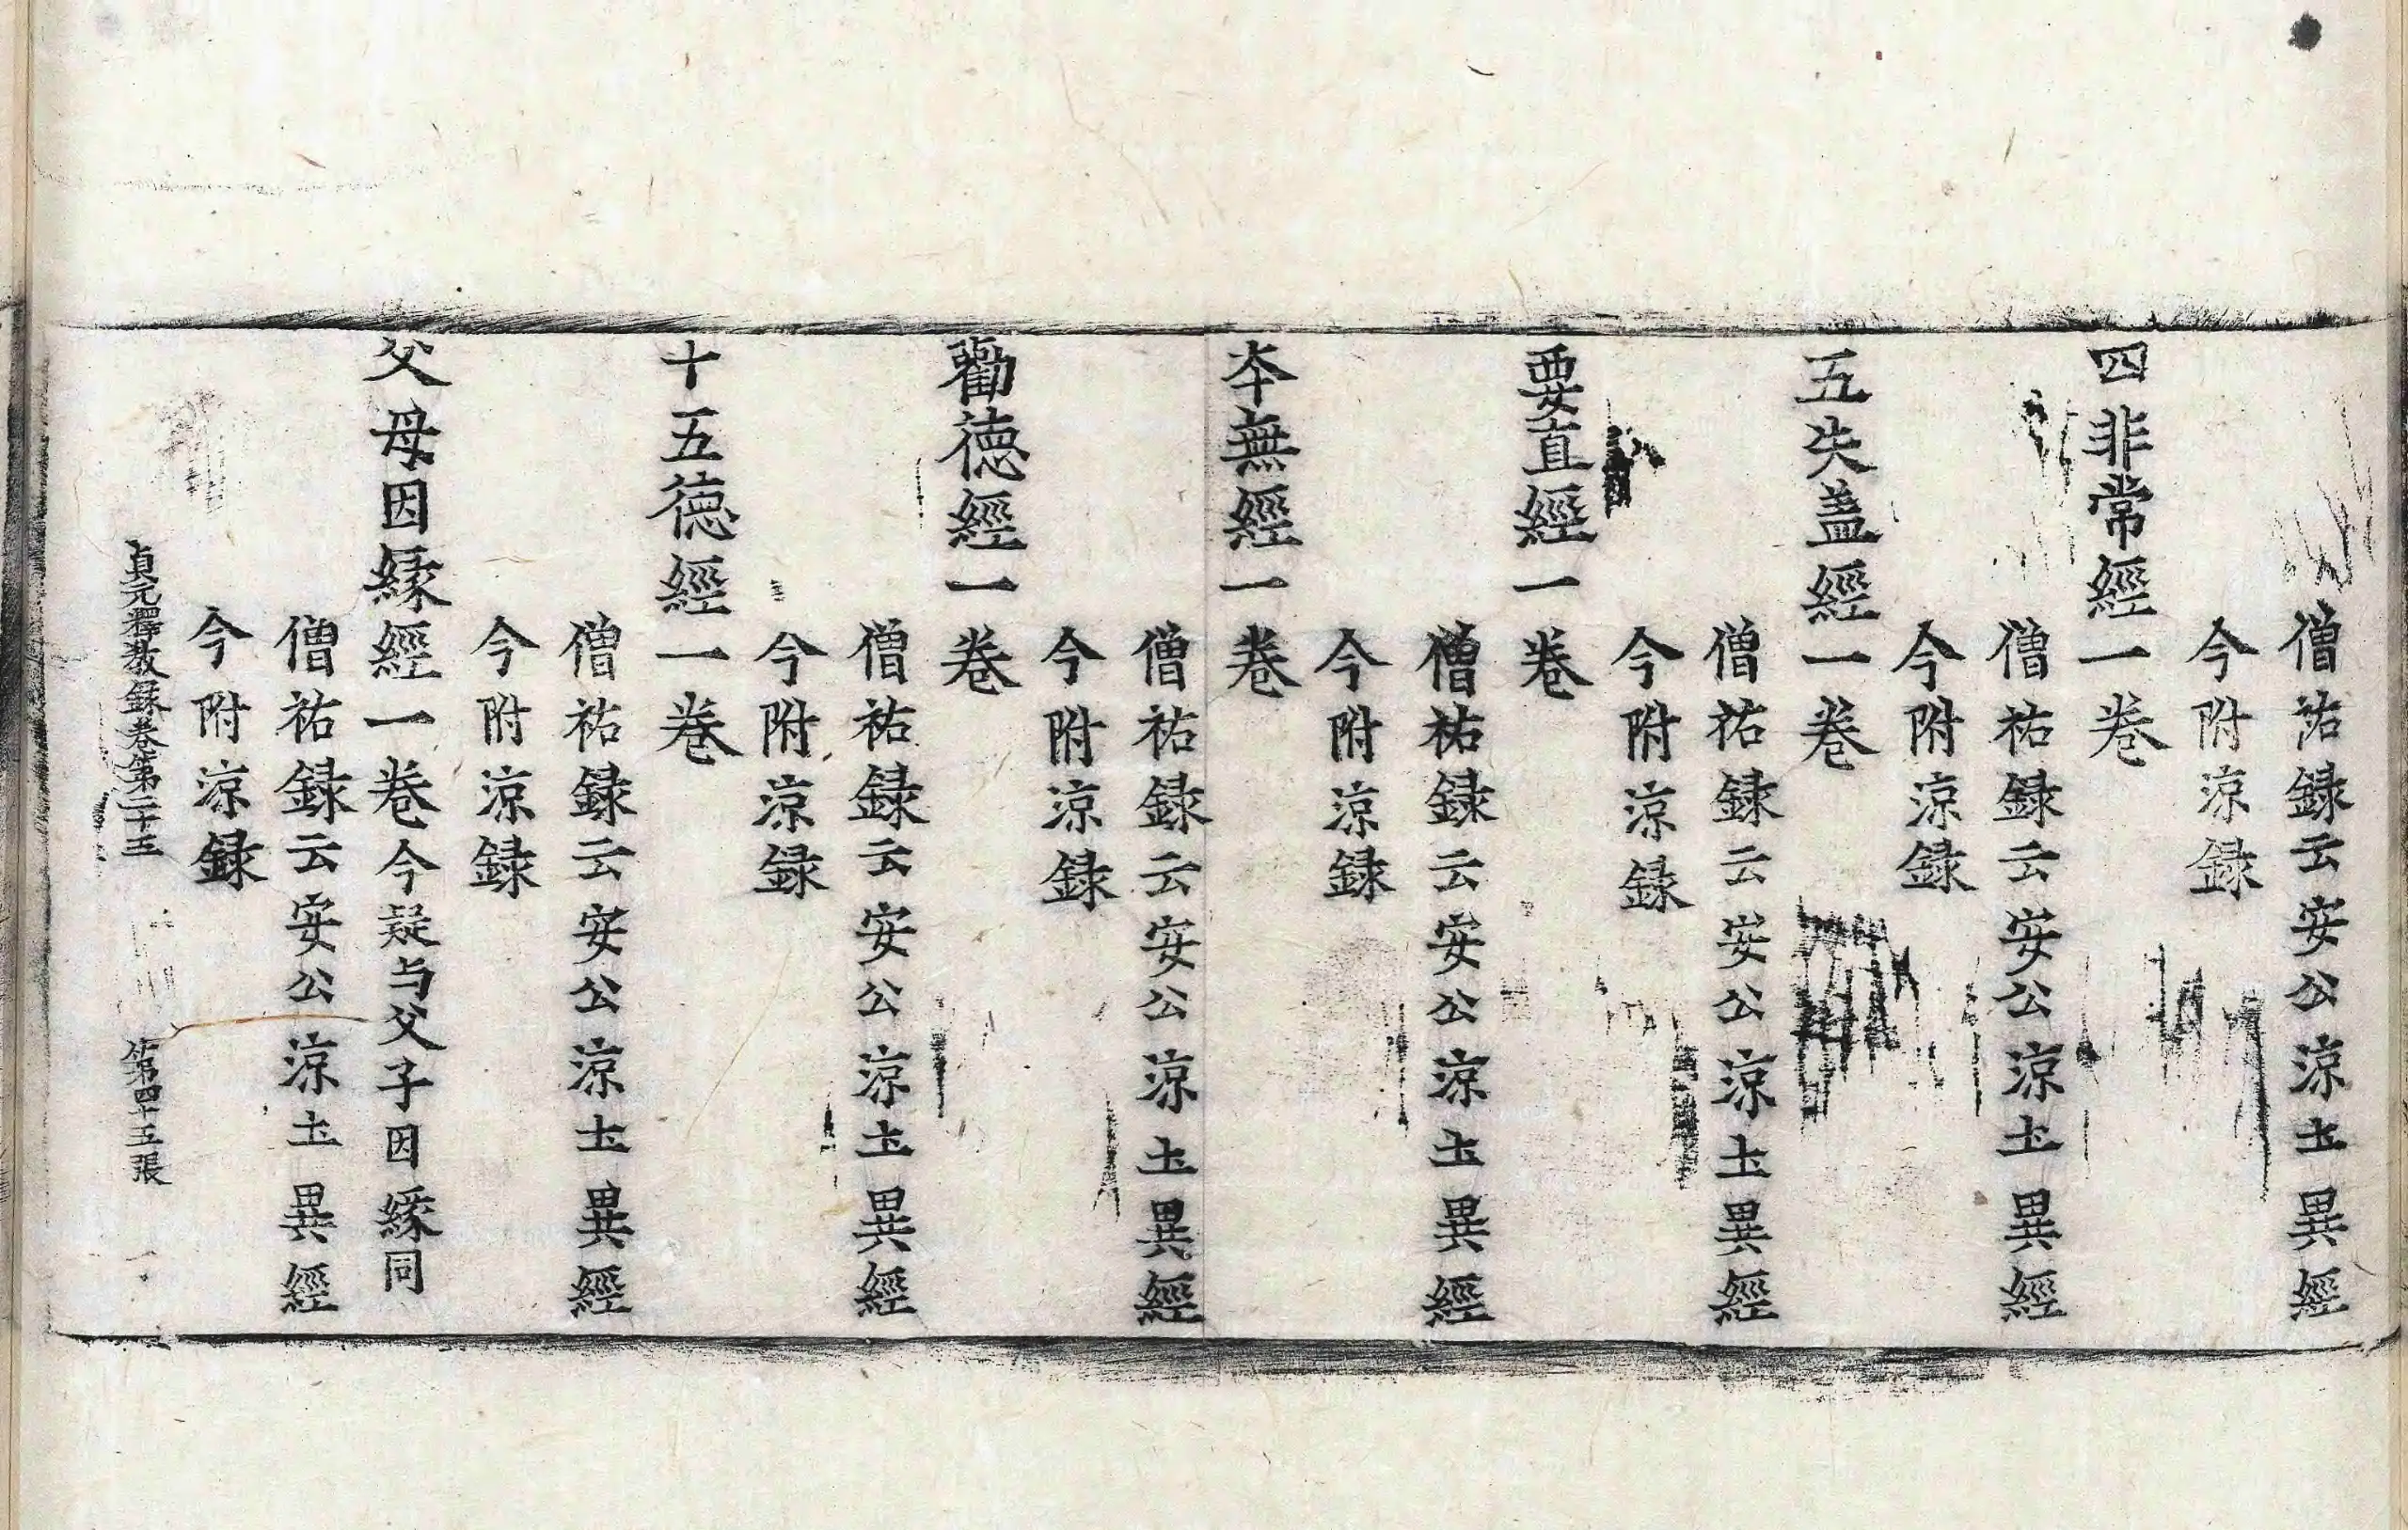 僧祐録云安公涼圡異經
今附涼録
四非常經一卷
僧祐録云安公涼圡異經
今附涼録
五失盖經一卷
僧祐録云安公涼圡異經
今附涼録
要直經一卷
僧祐録云安公涼圡異經
今附涼録
夲無經一卷
僧祐録云安公涼圡異經
今附涼録
勸徳經一卷
僧祐録云安公涼圡異經
今附涼録
十五徳經一卷
僧祐録云安公涼圡異經
今附涼録
父母因縁經一卷今疑与父子因縁同
僧祐録云安公涼圡異經
今附涼録
貞元釋教録卷第二十五 第四十五張